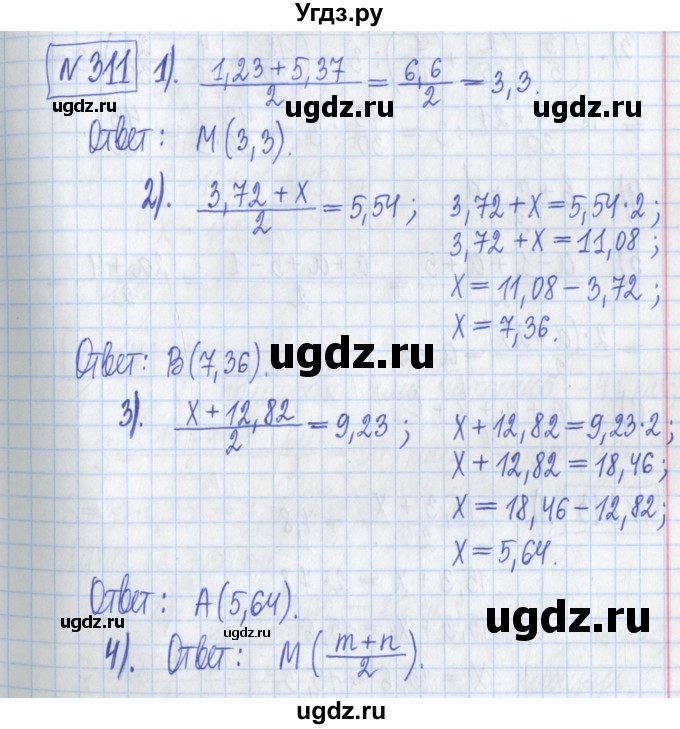 Угдз.ру
№311 1). (1,23 + 5,37)/2 = 6,6/2 = 3,3.
ugdz.ru ugdz.ru ugdz.ru
Ответ: М(3,3).
2). (3,72 + x)/2 = 5,54; 3,72 + x = 5,54·2;
3,72 + x = 11,08;
x = 11,08 – 3,72;
x = 7,36.
Ответ: В(7,36).
ugdz.ru ugdz.ru
3). (x + 12,82)/2 = 9,23; x + 12,82 = 9,23·2;
x + 12,82 = 18,46;
x = 18,46 – 12,82;
x = 5,64.
Ответ: А(5,64).
ugdz.ru ugdz.ru ugdz.ru
4). Ответ: М((m+n)/2).
ugdz.ru
ugdz.ru